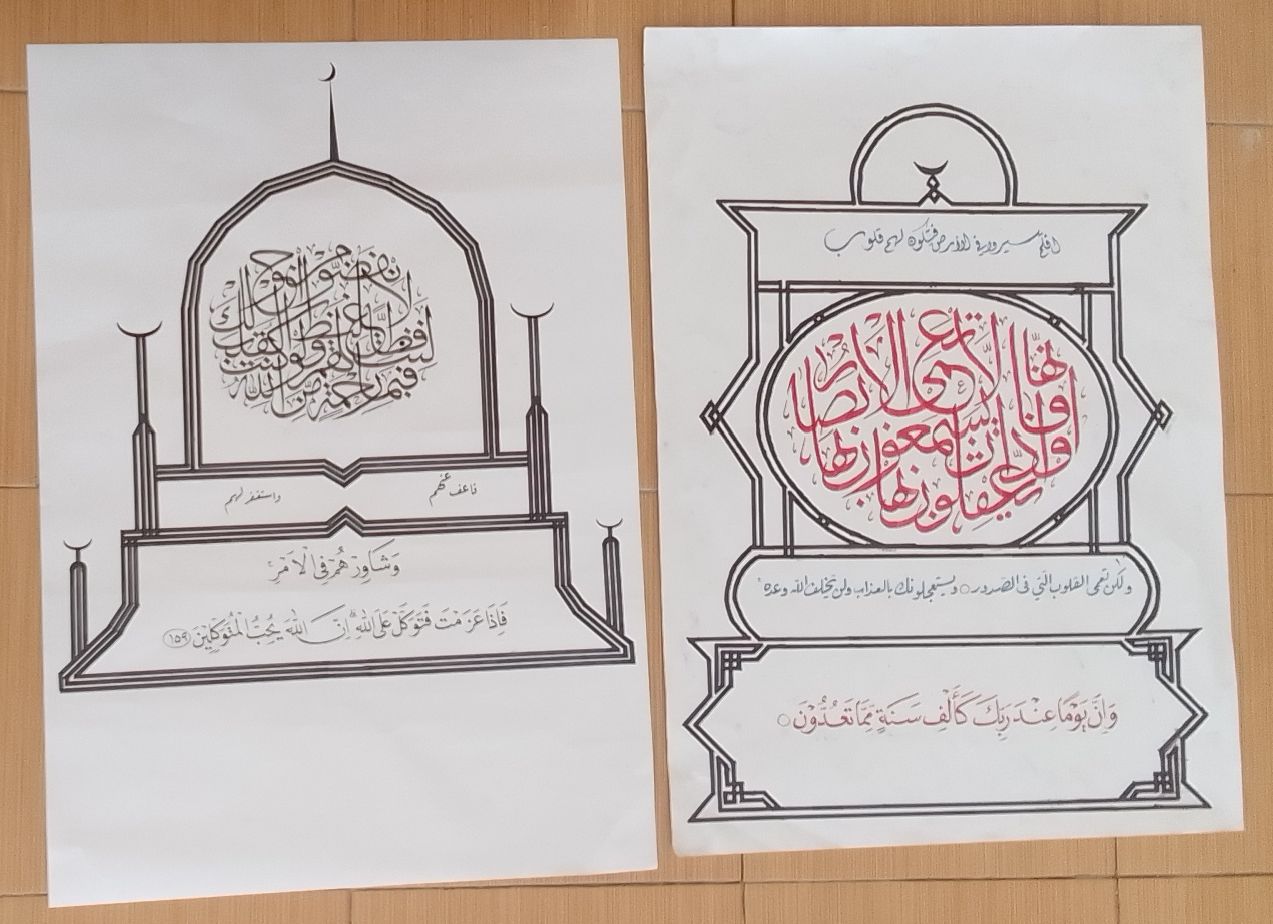 فَبِمَا رَحْمَةٍ مِّنَ اللهِ لِنْتَ لَهُمْ وَلَوْ كُنْتَ فَظًّا غَلِيْظَ الْقَلْبِ لَانْفَضُّوْا مِنْ حَوْلِكَ
فاعف عنهم واستغفر لهم
وَشَاوِرْهُمْ فِى الْاَمْرِۚ
فَاِذَا عَزَمْتَ فَتَوَكَّلْ عَلَى اللهِ ۗ اِنَّ اللهَ يُحِبُّ الْمُتَوَكِّلِيْنَ ١٥٩
افلم يسيروا في الأرض فتكون لهم قلوب
يَعْقِلُوْنَ بِهَا اَوْ اٰذَانٌ يَسْمَعُوْنَ بِهَا فَاِنَّهَا لَا تَعْمَى الْاَبْصَارُ
ولكن تعمى القلوب التي في الصدور ○ ويستعجلونك بالعذاب ولن يخلف الله وعده
وَاِنَّ يَوْمًا عِنْدَ رَبِّكَ كَأَلْفِ سَنَةٍ مِّمَّا تَعُدُّوْنَ ○